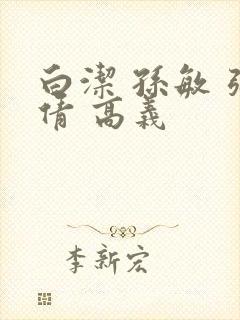 白潔 孫敏 張
倩 高義
李新宏